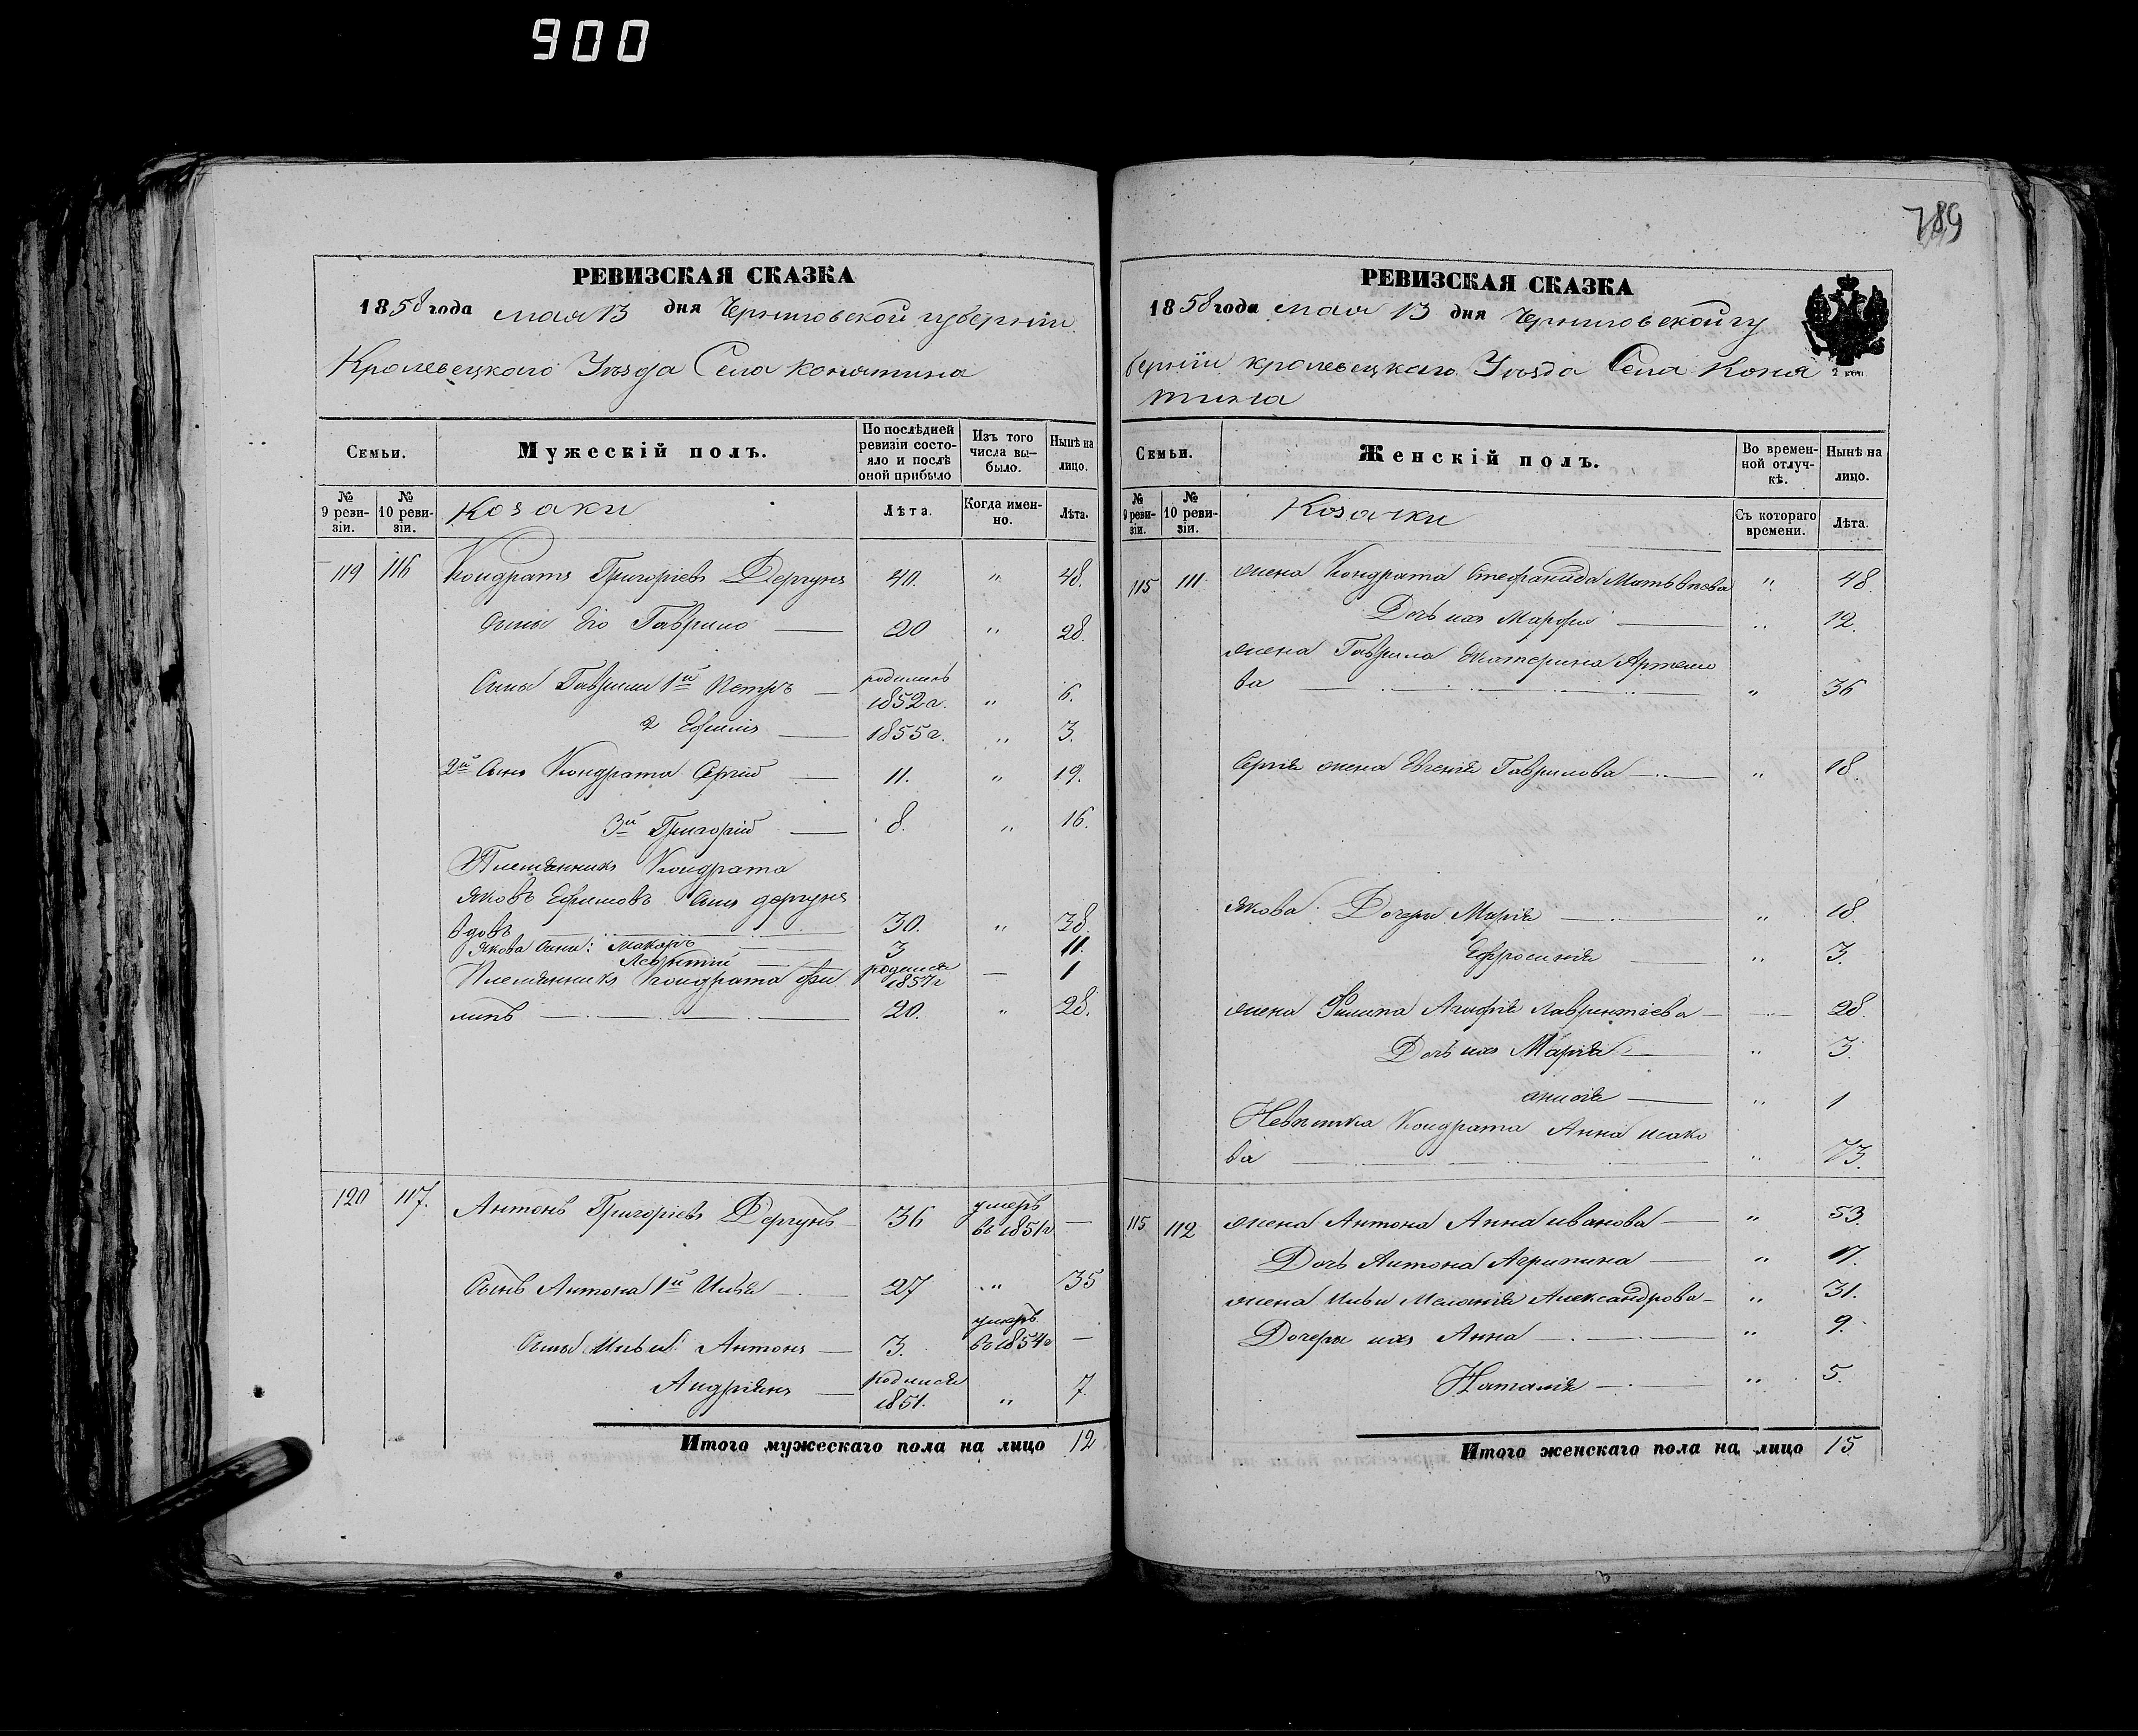 900
789
РЕВИЗСКАЯ СКАЗКА
1858 года мая 13 дня Черниговской губернии
Кролевецкаго Уѣзда Села Конятина
Семьи. Мужескій полъ. По послѣдней ревизіи состояло и послѣ оной прибыло Изъ того числа выбыло. Нынѣ на лицо.
№ 9 ревизіи. № 10 ревизіи. Козаки Лѣта. Когда именно. Лѣта.
119 116 Кондратъ Григоріевъ Дергунъ 40. " 48.
Сынъ Его Гаврило — 20 " 28.
Сыны Гаврили 1й Петръ — родились 1852г. " 6.
2 Ефимъ — 1855г. " 3.
2й Сынъ Кондрата Сергій — 11. " 19.
3й Григорій — 8. " 16.
Племянникъ Кондрата
Яковъ Ефимовъ Сынъ дергунъ
вдовъ — 30. " 38.
Якова Сыны: Макаръ — 3 11.
Леонтій — родился 1857г — 1
Племянникъ Кондрата Фи
липъ — 20. " 28.
120 117. Антонъ Григоріевъ Дергунъ 36 умеръ въ 1851г —
Сынъ Антона 1й Илья — 27 " 35
Сыны Ильи: Антонъ — 3. умеръ въ 1854г —
Андріянъ — родился 1851. " 7
Итого мужескаго пола на лицо 12
РЕВИЗСКАЯ СКАЗКА
1858 года мая 13 дня Черниговской гу
берніи кролевецкаго Уѣзда Села Коня
тина
2 коп.
Семьи. Женскій полъ. Во временной отлучкѣ. Нынѣ на лицо.
№ 9 ревизіи. № 10 ревизіи. Козачки Съ котораго времени. Лѣта.
115 111. жена Кондрата Стефанида Матвѣева " 48.
Дочь ихъ Марфа — " 12.
жена Гаврила Екатерина Артемо
ва — " 36
Сергія жена Евгенія Гаврилова — " 18.
Якова: Дочери Марія — " 18.
Ефросинія — " 3.
жена Филипа Агафія Лаврентіева — 28.
Дочь ихъ Марія — " 3.
— " 1
Невѣстка Кондрата Анна исако
ва — " 73.
115 112 жена Антона Анна иванова — " 53.
Дочь Антона Агрипина — " 17.
жена Ильи Меланія Александрова — " 31.
Дочери ихъ Анна — " 9.
Наталія — " 5.
Итого женскаго пола на лицо 15